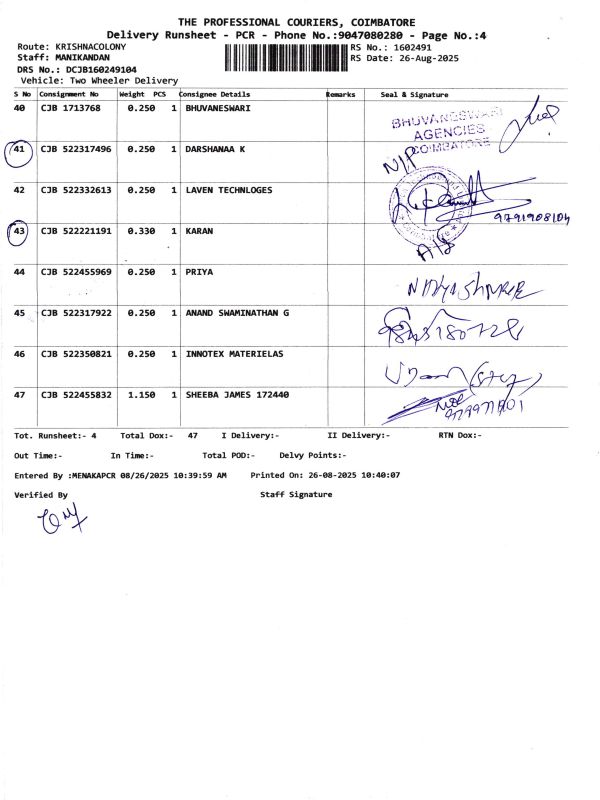 THE PROFESSIONAL COURIERS, COIMBATORE
Delivery Runsheet - PCR - Phone No.:9047080280 - Page No.:4
Route: KRISHNACOLONY RS No.: 1602491
Staff: MANIKANDAN RS Date: 26-Aug-2025
DRS No.: DCJB160249104
Vehicle: Two Wheeler Delivery
S No Consignment No Weight PCS Consignee Details Remarks Seal & Signature
40 CJB 1713768 0.250 1 BHUVANESWARI
BHUVANESWARI
AGENCIES
COIMBATORE
41 CJB 522317496 0.250 1 DARSHANAA K N/P
42 CJB 522332613 0.250 1 LAVEN TECHNLOGES
9791908104
43 CJB 522221191 0.330 1 KARAN
44 CJB 522455969 0.250 1 PRIYA
45 CJB 522317922 0.250 1 ANAND SWAMINATHAN G
46 CJB 522350821 0.250 1 INNOTEX MATERIELAS
47 CJB 522455832 1.150 1 SHEEBA JAMES 172440
Tot. Runsheet:- 4 Total Dox:- 47 I Delivery:- II Delivery:- RTN Dox:-
Out Time:- In Time:- Total POD:- Delvy Points:-
Entered By :MENAKAPCR 08/26/2025 10:39:59 AM Printed On: 26-08-2025 10:40:07
Verified By Staff Signature